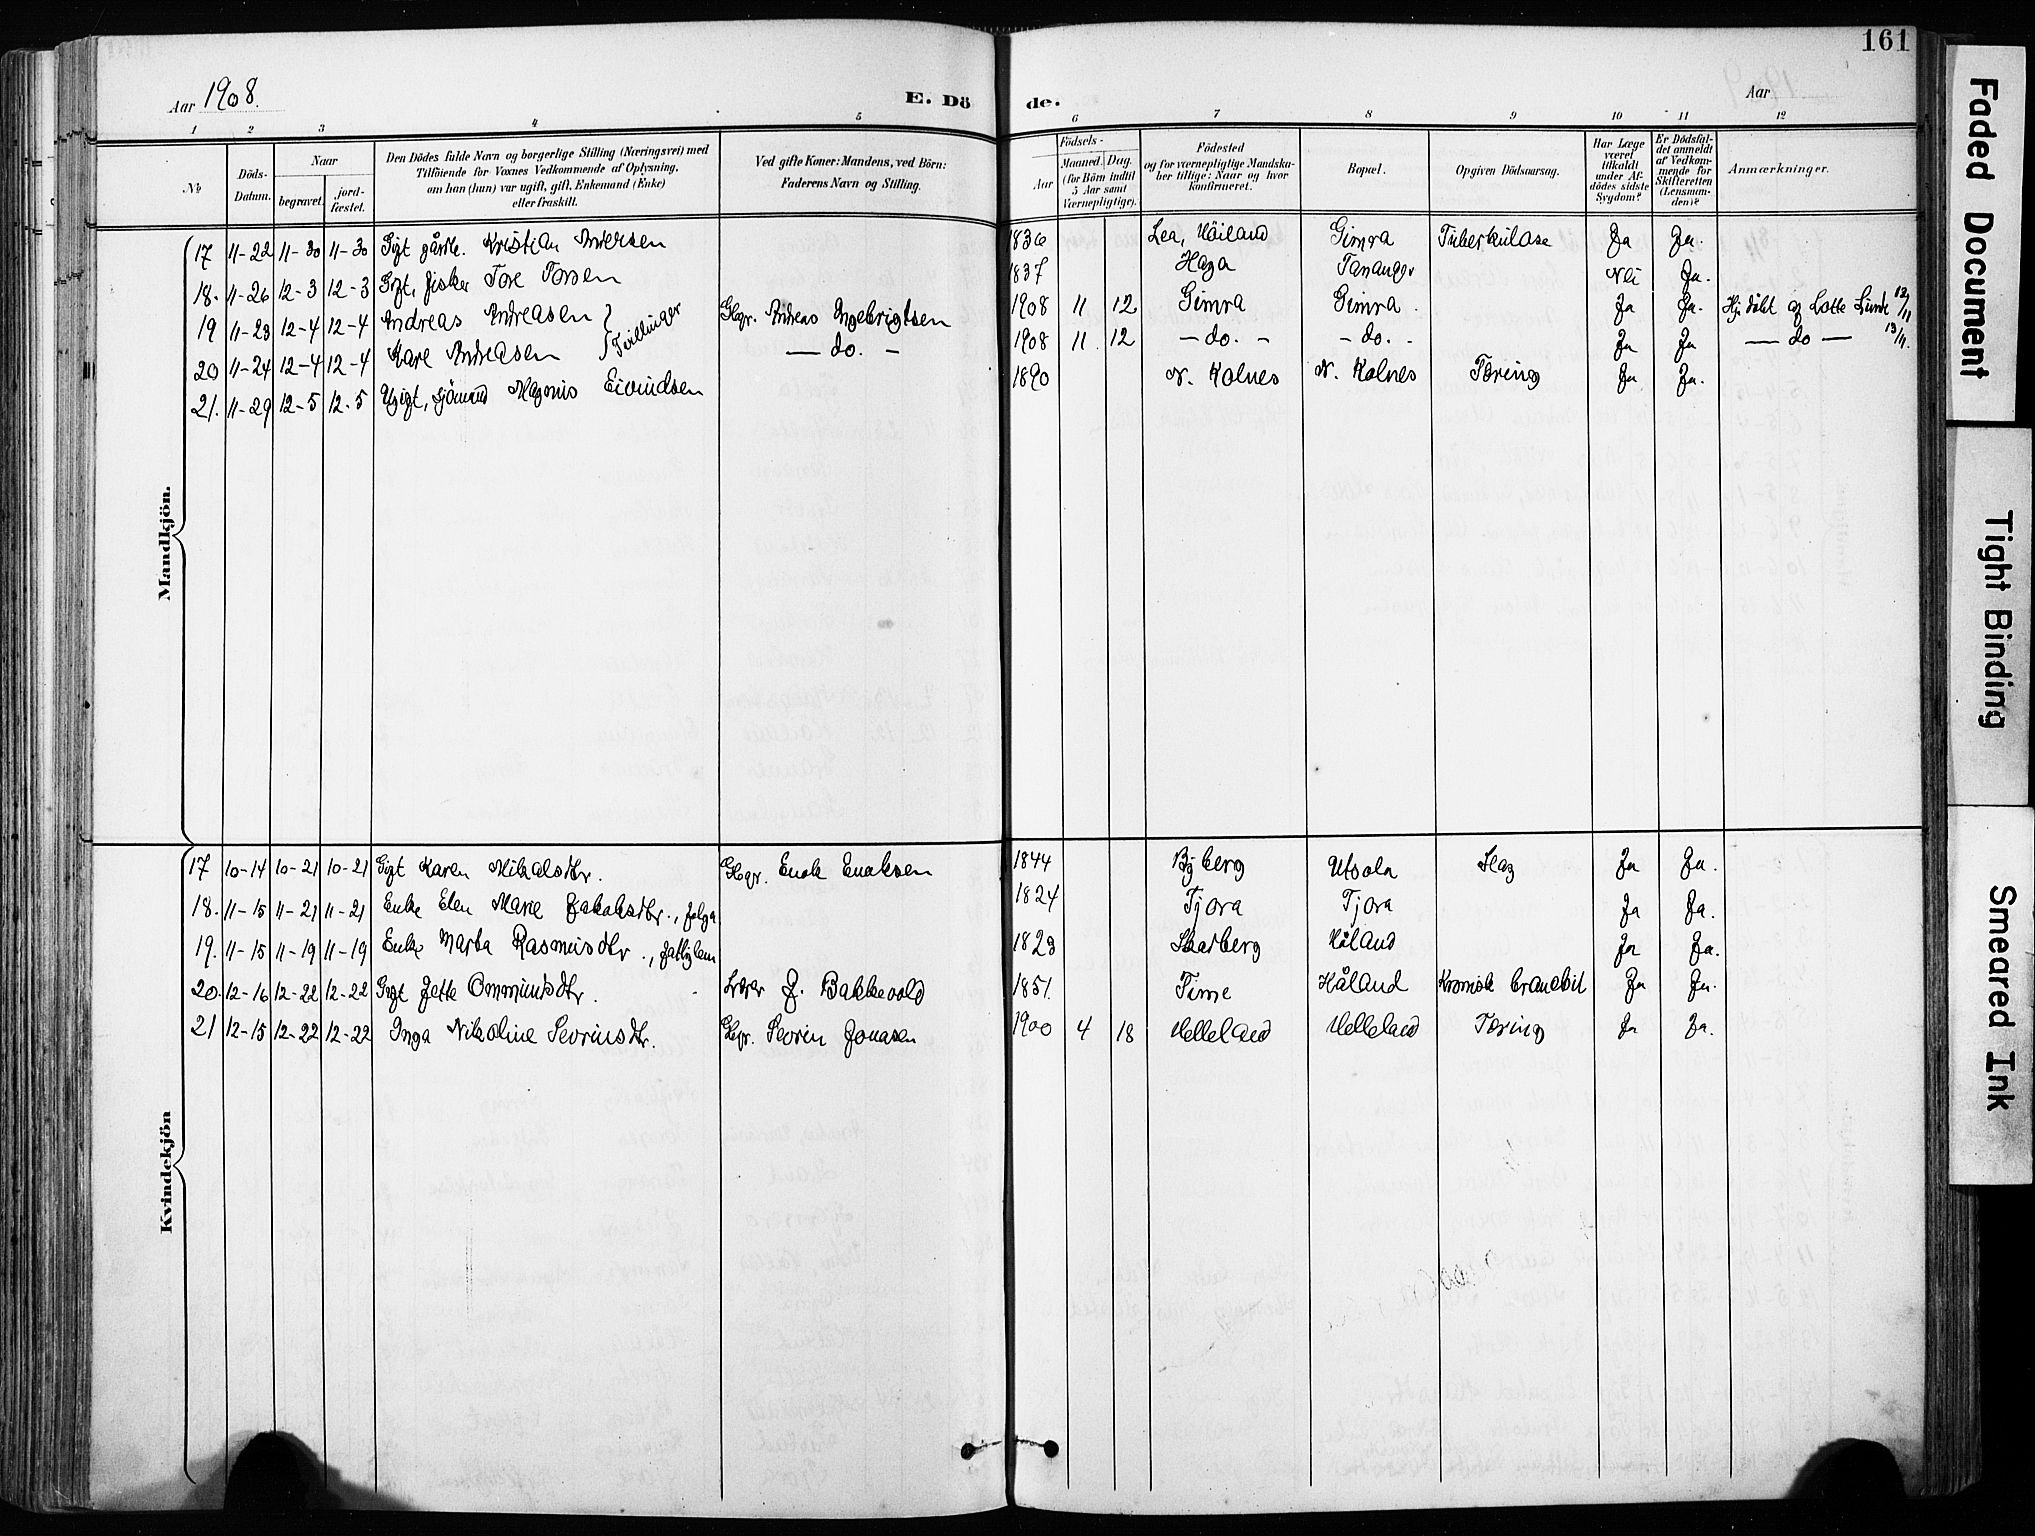 161
Aar 1908.
E. Dö
de.
Aar
1 2 3 4 5 6 7 8 9 10 11 12
№
Döds-Datum.
Naar
begravet.
jord-fæstet.
Den Dödes fulde Navn og borgerlige Stilling (Næringsvei) med
Tilföiende for Voxnes Vedkommende af Oplysning,
om han (hun) var ugift, gift, Enkemand (Enke)
eller fraskilt.
Ved gifte Koner: Mandens, ved Börn:
Faderens Navn og Stilling.
Födsels-
Aar
Maaned. Dag.
(for Börn indtil
5 Aar samt
Værnepligtige).
Födested
og for værnepligtige Mandska-
ber tillige: Naar og hvor
konfirmeret.
Bopæl.
Opgiven Dödsaarsag.
Har Læge
været
tilkaldt
under Af-
dödes sidste
Sygdom?
Er Dödsfal-
det anmeldt
af Vedkom-
mende for
Skifteretten
(Lensman-
den)?
Anmærkninger.
Mandkjön.
17 11-22 11-30 11-30 Gift gårdbr. Kristian Andersen 1836 Lea, Höiland Gimra Tuberkulose Ja Ja.
18. 11-26 12-3 12-3 Gift, fisker Tore Torsen 1837 Haga Tananger Nei Ja.
19 11-23 12-4 12-4 Andreas Andreasen } Tvillinger Gbgr. Andreas Ingebrigtsen 1908 11 12 Gimra Gimra. Ja Ja. Hj. döbt af Lotte Lunde 12/11
20 11-24 12-4 12-4 Kare Andreasen — do. — 1908 11. 12 — do. — — do. — Ja Ja — do — 13/11.
21. 11-29 12-5 12-5 Ugift, sjömand Magnus Eivindsen 1890 N. Kolnes N. Kolnes Tæring Ja Ja.
Kvindekjön
17 10-14 10-21 10-21 Gift Karen Mikalsdtr. Gbgr. Enok Enoksen 1844 Byberg Utsola Slag Ja Ja.
18. 11-15 11-21 11-21 Enke Elen Marie Jakobsdtr., 1824 Tjora Tjora Ja Ja.
19. 11-15 11-19 11-19 Enke Marta Rasmusdtr., fattiglem 1823 Håland Ja Ja.
20. 12-16 12-22 12-22 Gift Jette Ommundsdtr. Lærer J. Bakkevold 1851. Time Håland Kronisk bronchit Ja Ja.
21 12-15 12-22 12-22 Inga Nikoline Sevrinsdtr. Gbgr. Sevrin Jonasen 1900 4 18 Helleland Helleland Tæring Ja Ja.
Faded Document
Tight Binding
Smeared Ink